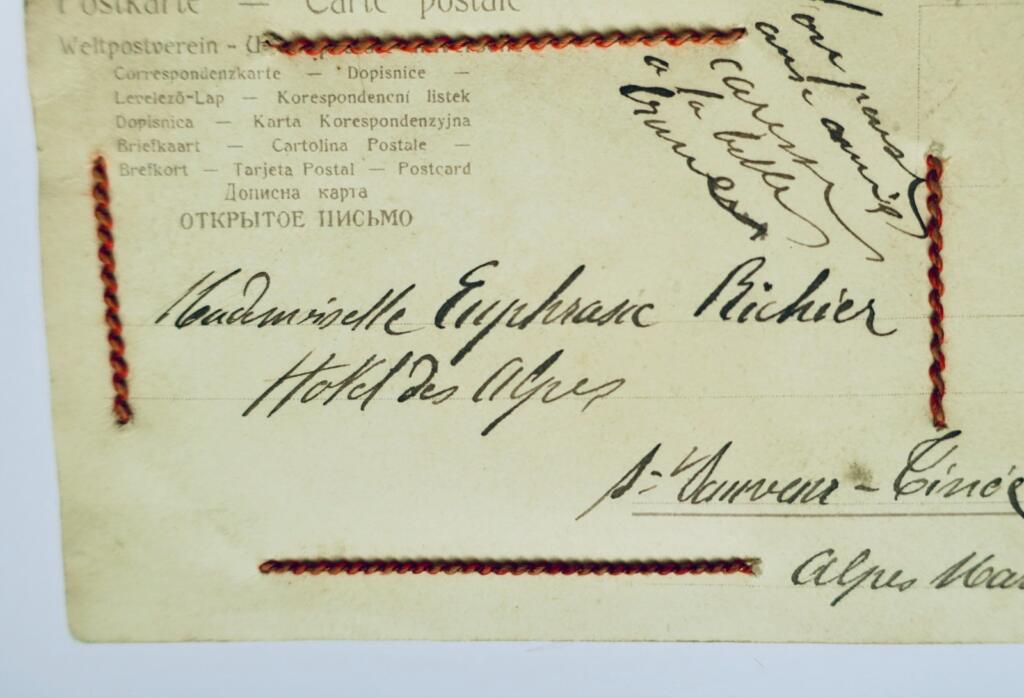 Postkarte — Carte postale
Weltpostverein -
Correspondenzkarte — Dopisnice —
Levelező-Lap — Korespondencní listek
Dopisnica — Karta Korespondenzyjna
Briefkaart — Cartolina Postale —
Brefkort — Tarjeta Postal — Postcard
Дописна карта
ОТКРЫТОЕ ПИСЬМО
caresses
a la belle
brune
Mademoiselle Euphrasie Richier
Hotel des Alpes
St Sauveur – Tinée
Alpes Mar